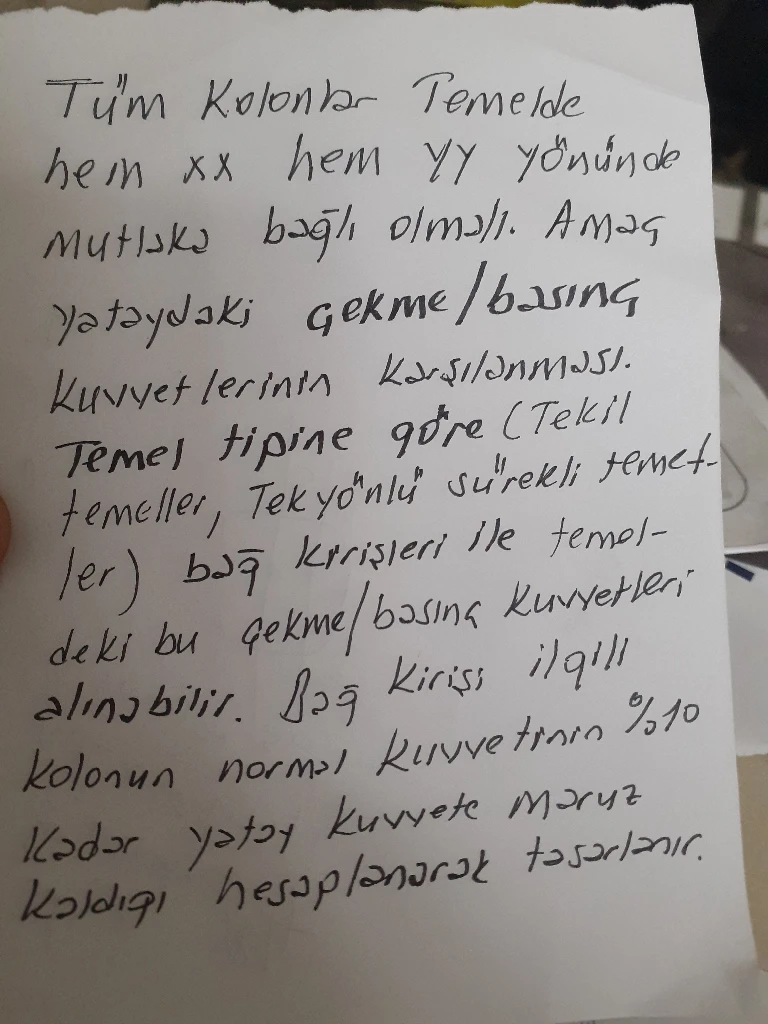 Tüm Kolonlar Temelde
hem xx hem yy yönünde
mutlaka bağlı olmalı. Amaç
yataydaki çekme/basınç
kuvvetlerinin karşılanması.
Temel tipine göre (Tekil
temeller, Tek yönlü sürekli temel-
ler) bağ kirişleri ile temel-
deki bu çekme/basınç kuvvetleri
alınabilir. Bağ kirişi ilgili
kolonun normal kuvvetinin %10
kadar yatay kuvvete maruz
kaldığı hesaplanarak tasarlanır.